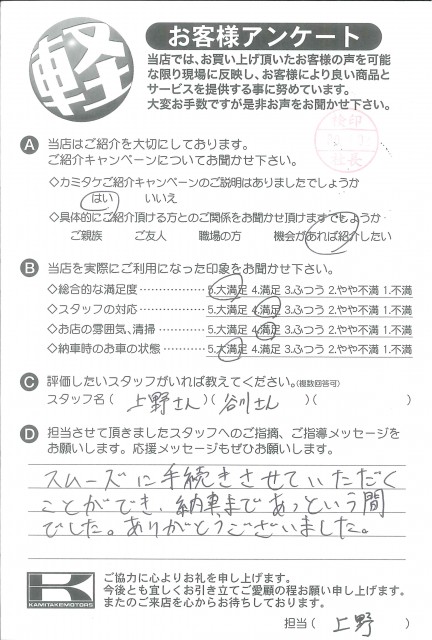 軽
お客様アンケート
当店では、お買い上げ頂いたお客様の声を可能
な限り現場に反映し、お客様により良い商品と
サービスを提供する事に努めています。
大変お手数ですが是非お声をお聞かせ下さい。
検印
社長
A 当店はご紹介を大切にしております。
ご紹介キャンペーンについてお聞かせ下さい。
◇カミタケご紹介キャンペーンのご説明はありましたでしょうか
はい いいえ
◇具体的にご紹介頂ける方とのご関係をお聞かせ頂けますでしょうか
ご親族 ご友人 職場の方 機会があれば紹介したい
B 当店を実際にご利用になった印象をお聞かせ下さい。
◇総合的な満足度……………5.大満足 4.満足 3.ふつう 2.やや不満 1.不満
◇スタッフの対応……………5.大満足 4.満足 3.ふつう 2.やや不満 1.不満
◇お店の雰囲気、清掃………5.大満足 4.満足 3.ふつう 2.やや不満 1.不満
◇納車時のお車の状態………5.大満足 4.満足 3.ふつう 2.やや不満 1.不満
C 評価したいスタッフがいれば教えてください。(複数回答可)
スタッフ名( 上野さん )( 谷川さん )( )
D 担当させて頂きましたスタッフへのご指摘、ご指導メッセージを
お願いします。応援メッセージもぜひお願いします。
スムーズに手続きさせていただく
ことができ、納車まであっという間
でした。ありがとうございました。
K
KAMITAKEMOTORS
ご協力に心よりお礼を申し上げます。
今後とも宜しくお引き立てご愛顧の程お願い申し上げます。
またのご来店を心からお待ちしております。
担当( 上野 )